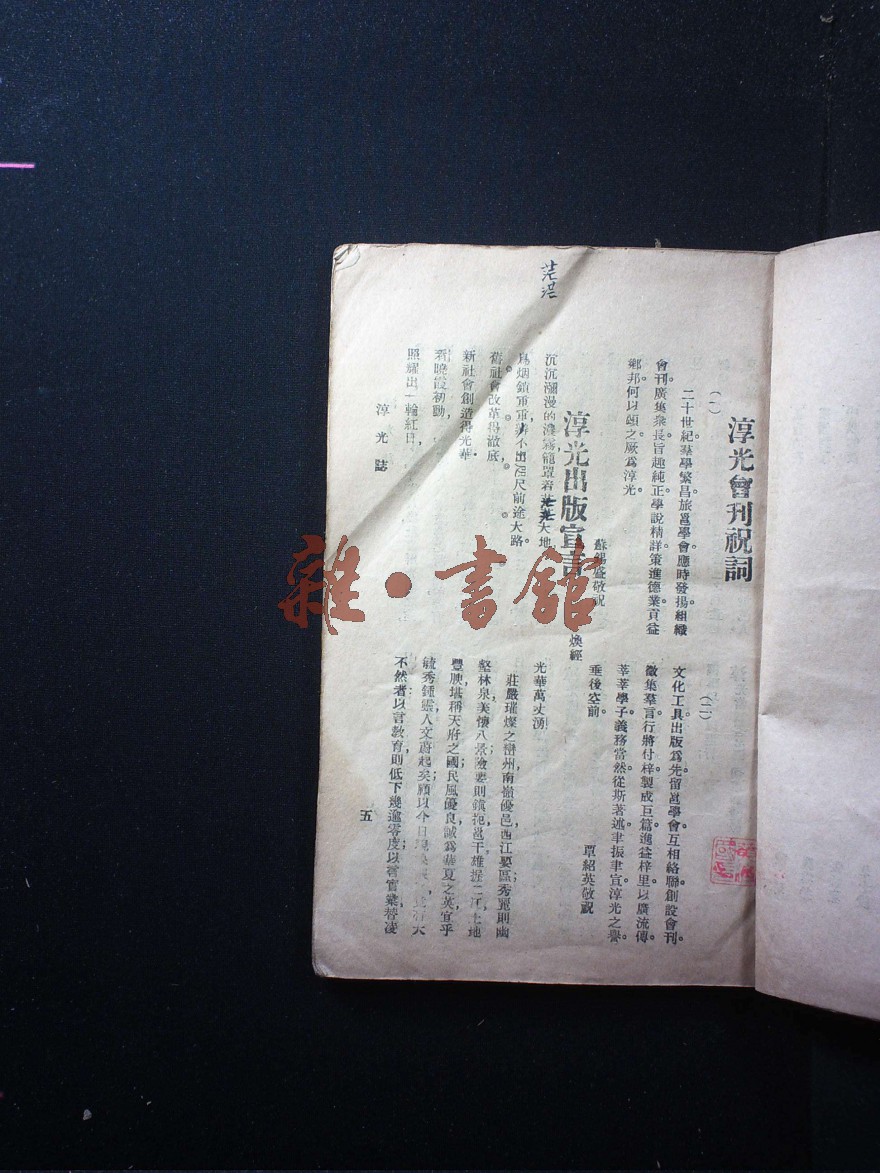 茫茫
淳光會刊祝詞
(一)
二十世紀羣學繁昌旅邕學會應時發揚組織
會刊廣集衆長旨趣純正學說精詳策進德業貢益
鄉邦何以頌之厥爲淳光。
蘇錫盛敬祝
(二)
文化工具出版爲先留邕學會互相絡聯創設會刊。
徵集羣言行將付梓製成巨篇進益梓里以廣流傳。
莘莘學子義務當然從斯著述聿振聿宣淳光之譽。
垂後空前。
覃紹英敬祝
淳光出版宣言
煥經
沉沉瀰漫的濃霧籠罩着茫茫大地,
烏烟鎖軍重辨不出咫尺前途大路。
舊社會改革得澈底,
新社會創造得光華。
看曉霞初動,
照耀出一輪紅日,
光華萬丈湧
莊嚴璀燦之巒州南嶺優邑西江要區秀麗則幽
壑林泉美懷八景險要則鎮抱邕干雄握二江土地
豐腴堪稱天府之國民風優良誠爲華夏之英宜乎
毓秀鍾靈人文蔚起矣顧以今日
不然者以言教育則低下幾逾零度以言實業替凌
淳光誌
五
雜·書館